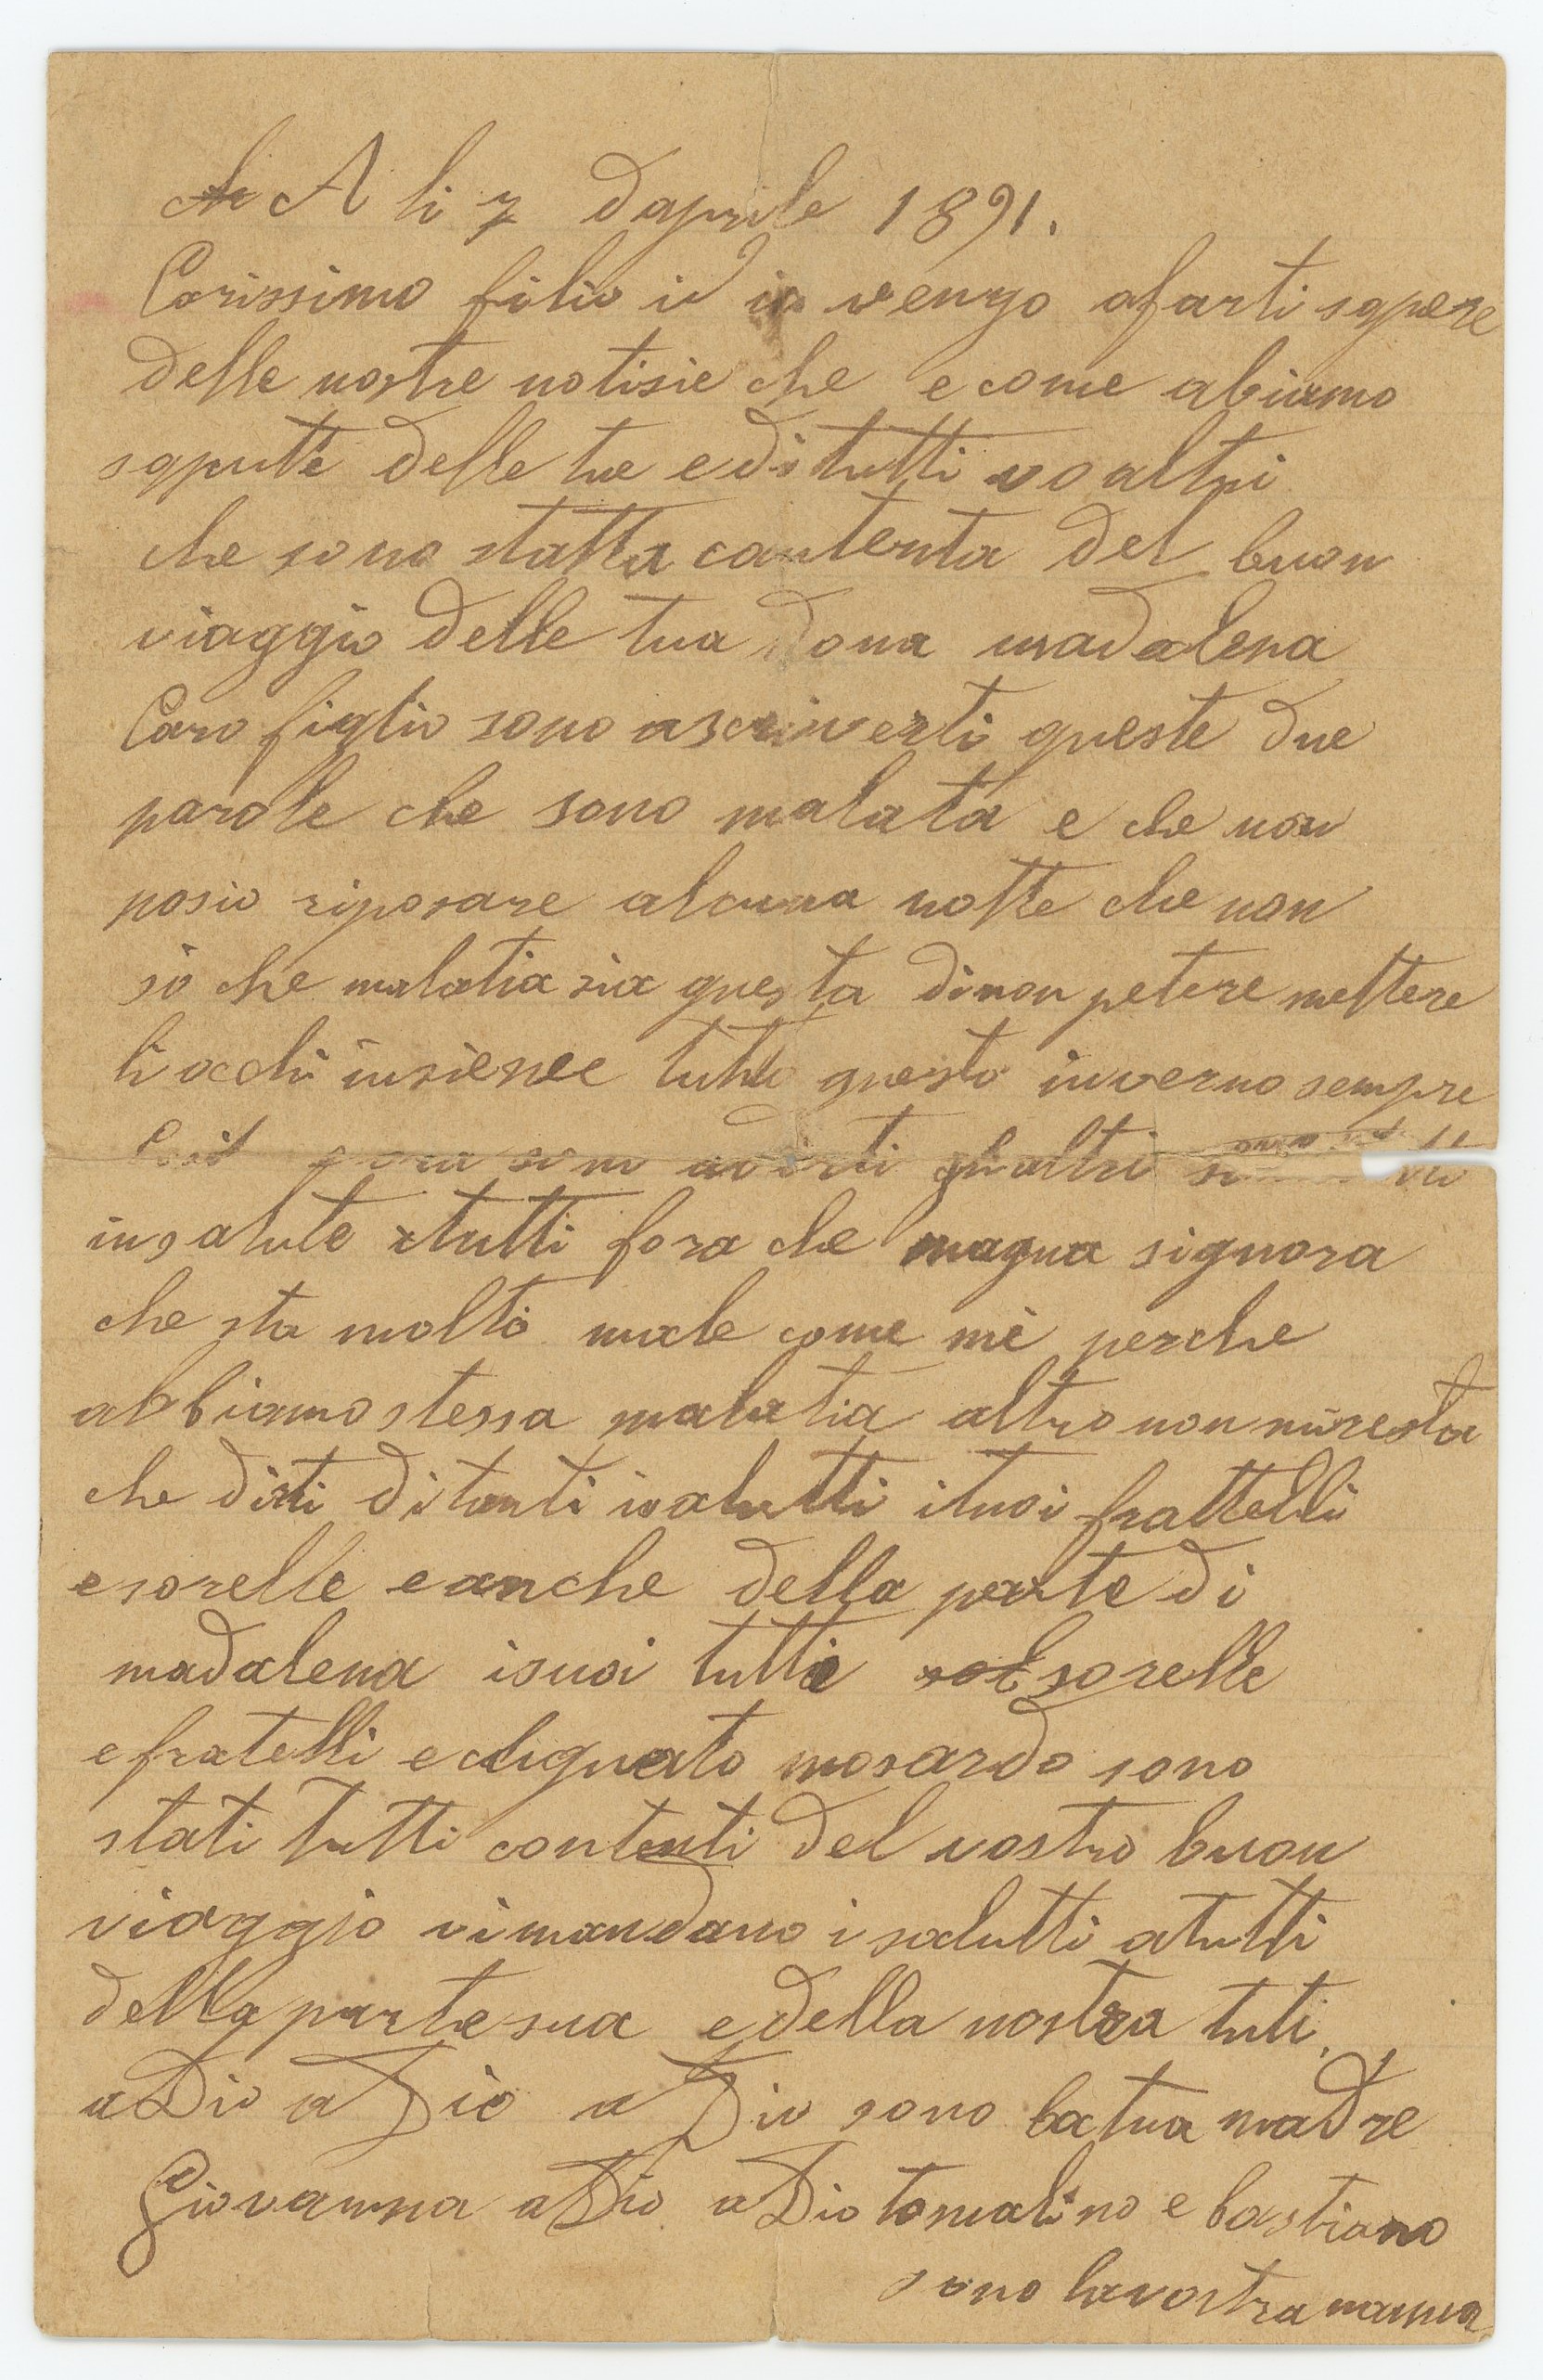 A li 7 Daprile 1891.
Carissimo filio io vengo afarti sapere
delle nostre notisie che e come abiamo
sapute delle tue e di tutti vo altri
che sono statta contenta del buon
viaggio delle tua dona madalena
Caro figlio sono ascriverti queste due
parole che sono malata e che non
posio riposare alcuna notte che non
so che malatia sia questa dinon petere mettere
li occhi insieme tutto questo inverno sempre
cosi ora sono avirti gli altri
insalute tutti fora che magna signora
che sta molto male come me perche
abbiamo stessa malatia altro non miresta
che dirti di tanti isalutti ituoi frattelli
e sorelle e anche della parte di
madalena isuoi tutti sorelle
e fratelli e chignato mosardo sono
stati tutti contenti del vostro buon
viaggio vimandano i salutti atutti
della parte sua e della nostra tuti.
a Dio a Dio a Dio sono la tua madre
Giovanna a Dio a Dio tomalino e bastiano
sono lavostra mama